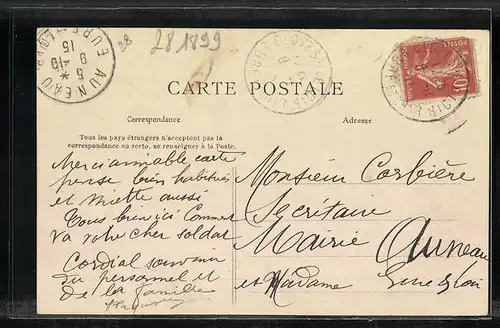 28
28 1899
AUNEAU
EURE-ET-LOIR
5 * -19
9
15
CARTE POSTALE
Correspondance
Adresse
Tous les pays étrangers n'acceptent pas la
correspondance au recto, se renseigner à la Poste.
POSTES
10
Merci aimable carte
pense bien habitués
et Miette aussi
Tous bien ici Comment
va votre cher soldat
Cordial souvenir
du personnel et
de la famille
Monsieur Corbière
Secrétaire
Mairie Auneau
et Madame Eure & Loir